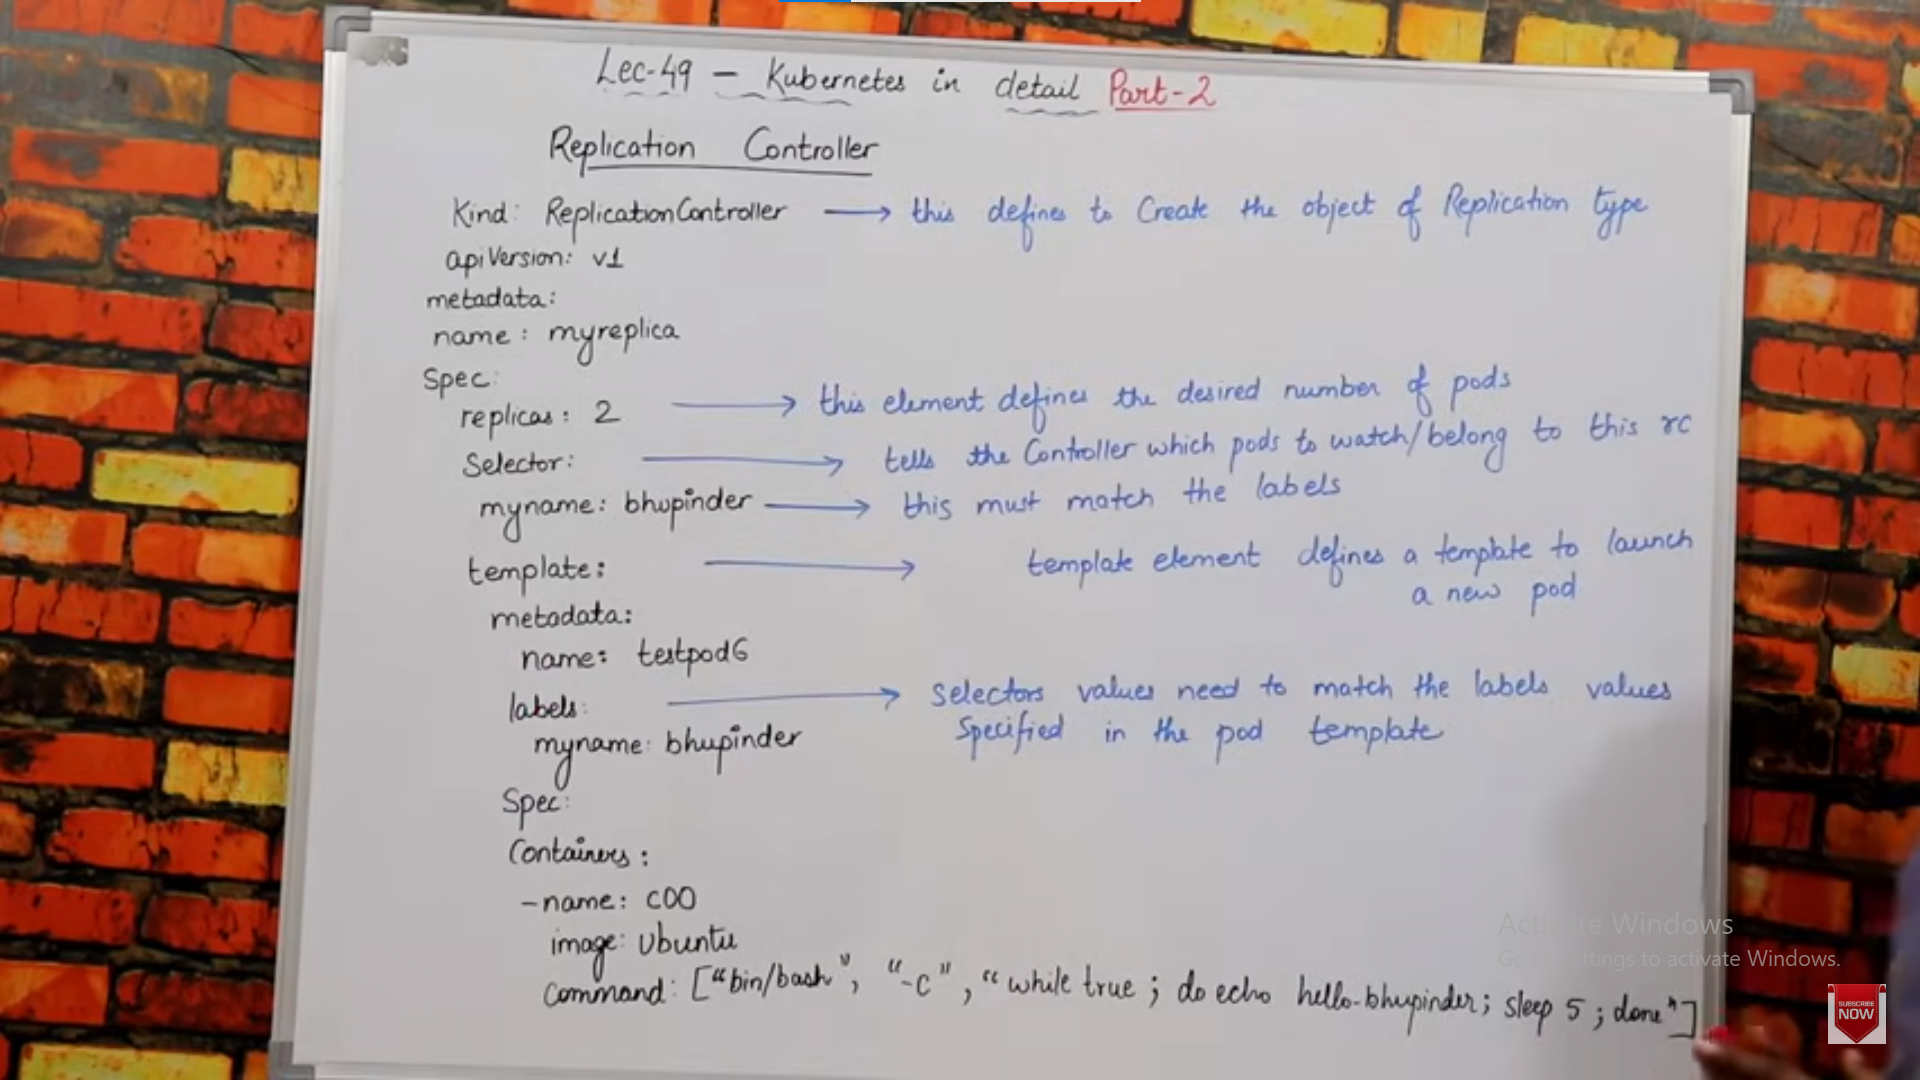 Lec-49 - Kubernetes in detail Part-2
Replication Controller
Kind: ReplicationController → this defines to Create the object of Replication type
apiVersion: v1
metadata:
name: myreplica
Spec:
replicas: 2 → this element defines the desired number of pods
Selector: → tells the Controller which pods to watch/belong to this rc
myname: bhupinder → this must match the labels
template: → template element defines a template to launch
a new pod
metadata:
name: testpod6
labels: → Selectors values need to match the labels values
myname: bhupinder Specified in the pod template
Spec:
Containers:
-name: c00
image: Ubuntu
Command: ["bin/bash", "-c", "while true; do echo hello-bhupinder; sleep 5; done"]
Activate Windows
Go to Settings to activate Windows.
SUBSCRIBE
NOW